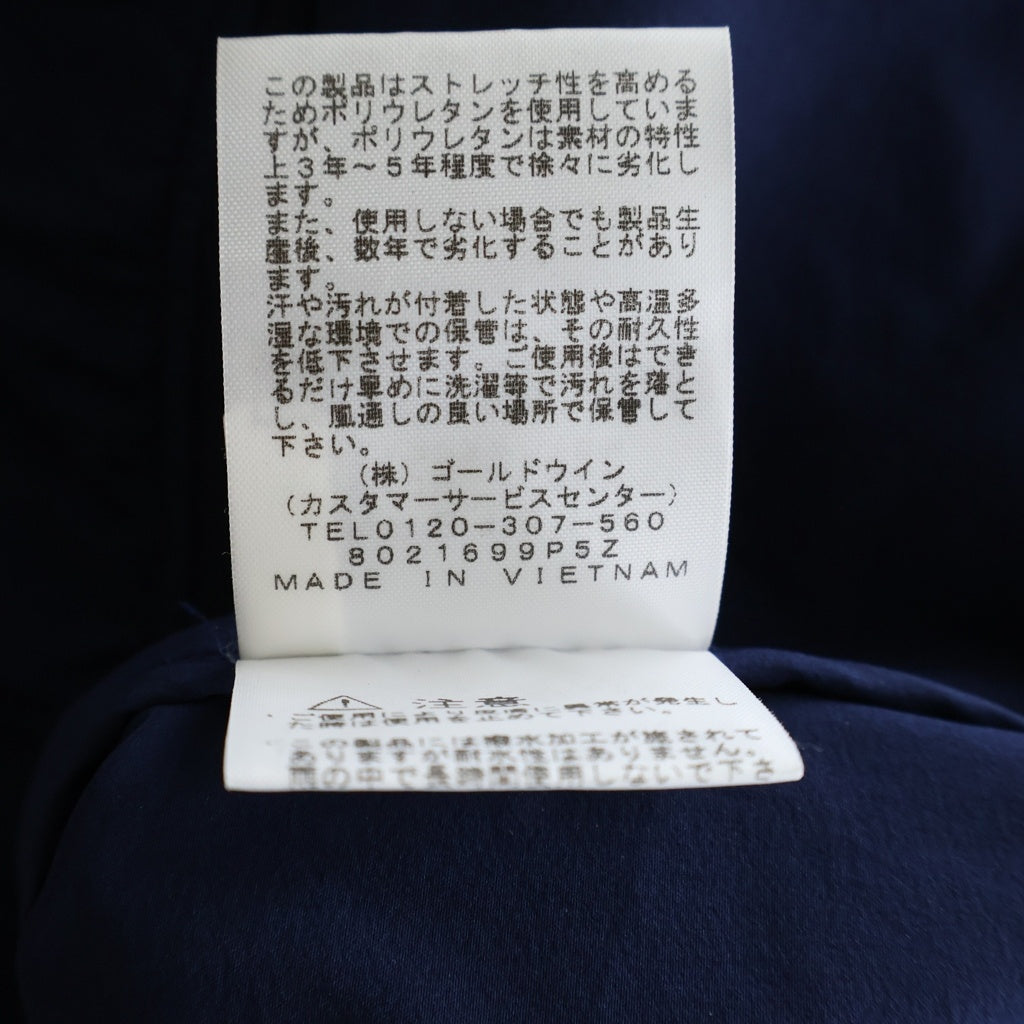 この製品はストレッチ性を高める
ためポリウレタンを使用していま
すが、ポリウレタンは素材の特性
上3年～5年程度で徐々に劣化し
ます。
また、使用しない場合でも製品生
産後、数年で劣化することがあり
ます。
汗や汚れが付着した状態や高温多
湿な環境での保管は、その耐久性
を低下させます。ご使用後はでき
るだけ早めに洗濯等で汚れを落とて
し、風通しの良い場所で保管して
下さい。
(株)ゴールドウイン
(カスタマーサービスセンター)
TEL0120-307-560
8021699P5Z
MADE IN VIETNAM
注意
が発生し
た時は使用を止めて下さい。
この製品には撥水加工が施されて
ありますが耐水性はありません。
雨の中で長時間使用しないで下さ